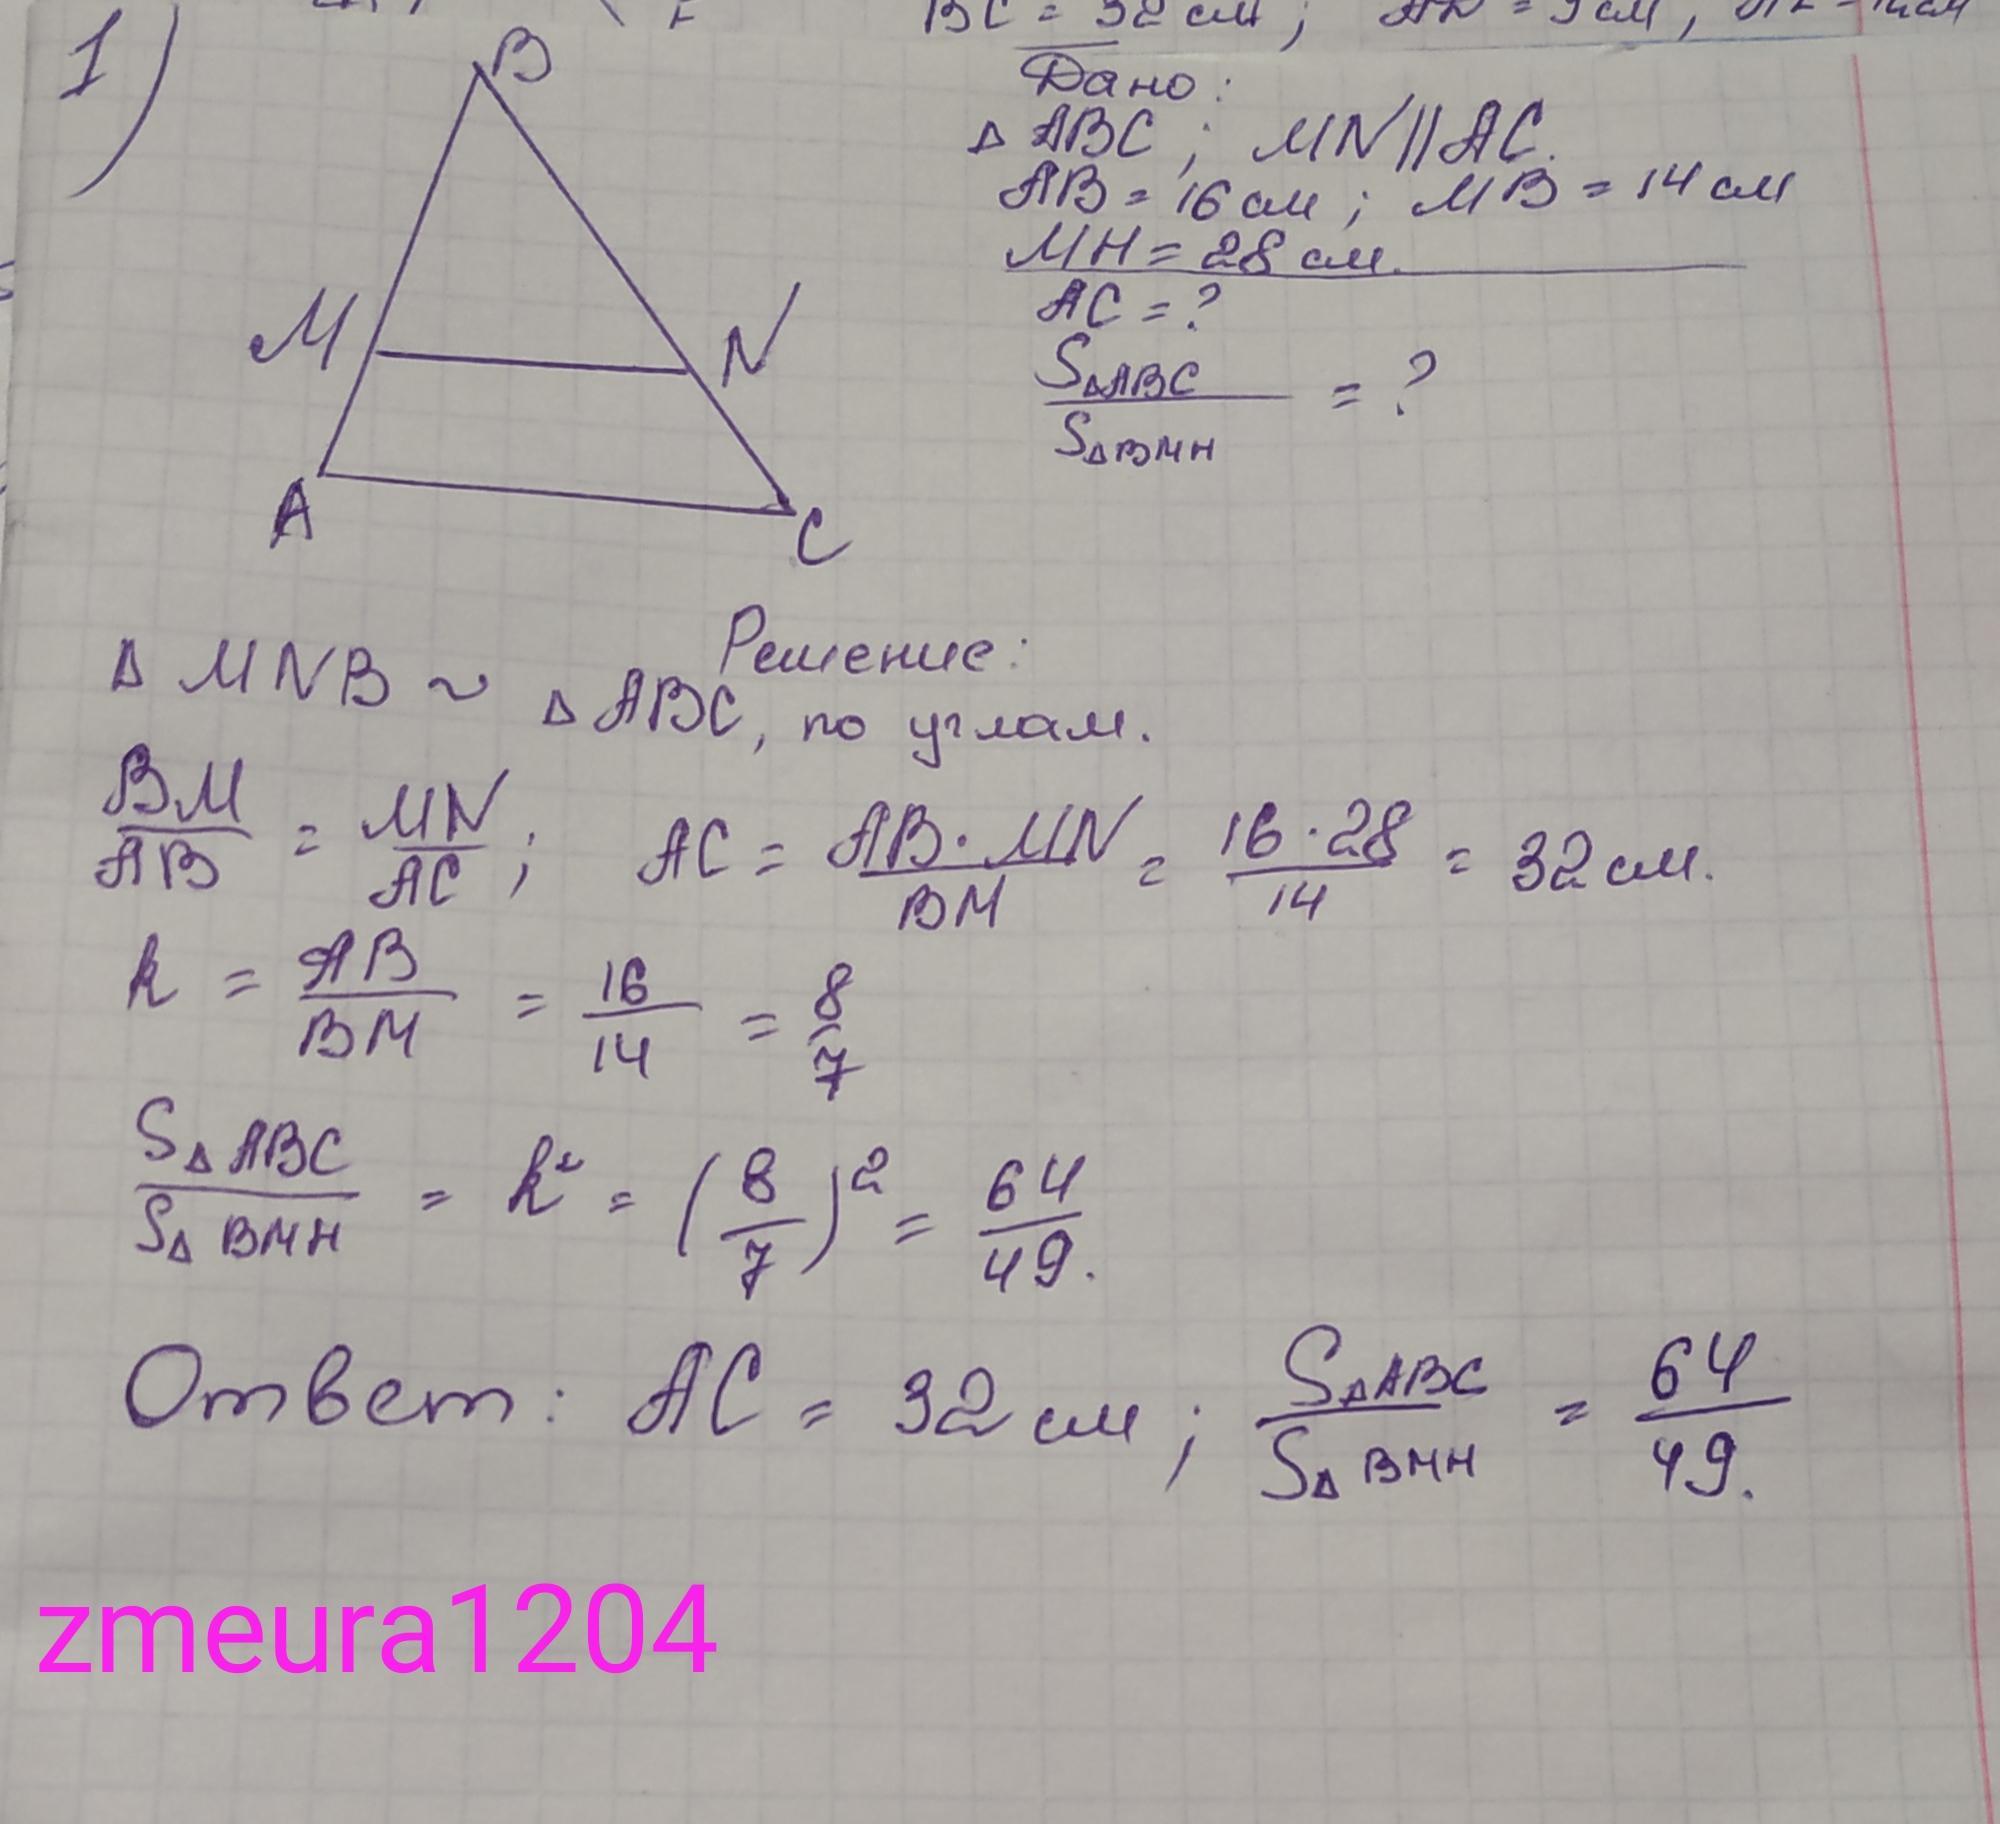 BC = 32 см;
1)
B
M
N
A
C
Дано:
Δ ABC; MN || AC.
AB = 16 см; MB = 14 см
MH = 28 см.
AC = ?
SΔABC / SΔBMH = ?
Решение:
Δ MNB ~ Δ ABC, по углам.
BM / AB = MN / AC; AC = AB · MN / BM = 16 · 28 / 14 = 32 см.
k = AB / BM = 16 / 14 = 8 / 7
SΔABC / SΔBMH = k² = (8 / 7)² = 64 / 49.
Ответ: AC = 32 см; SΔABC / SΔBMH = 64 / 49.
zmeura1204